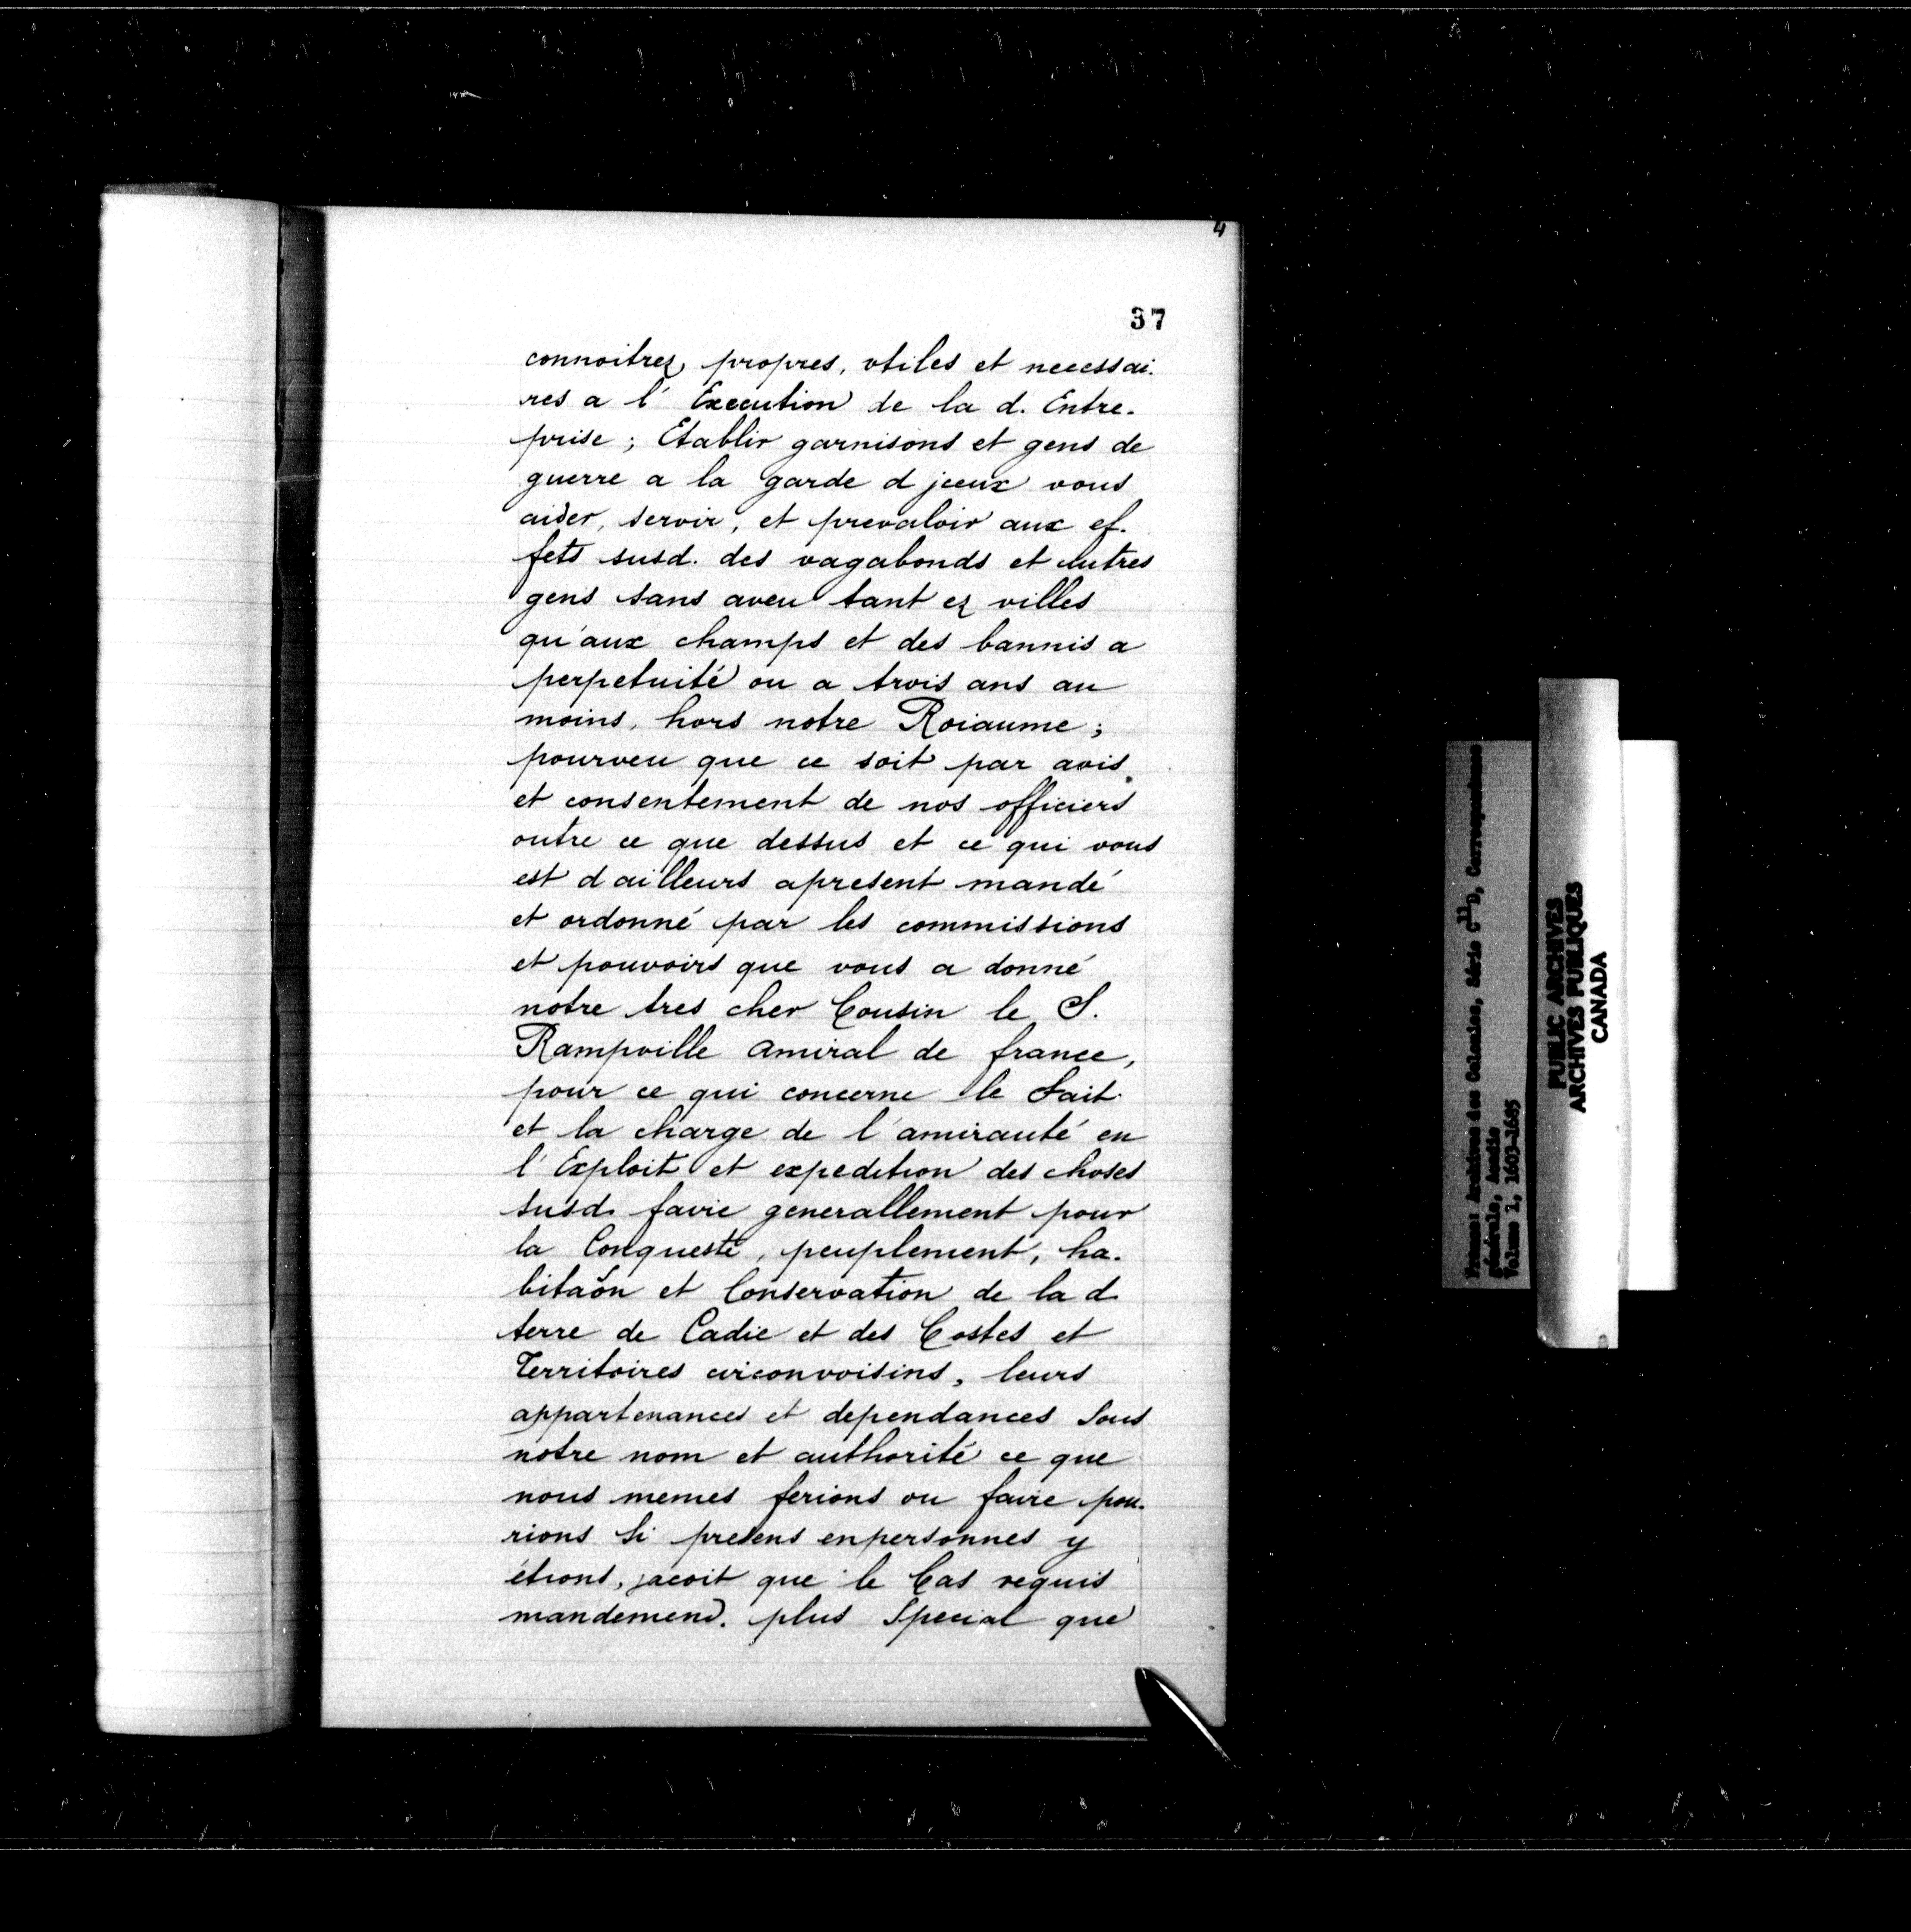 4
37
connoitrez propres, vtiles et necessai.
res a l' Execution de la d. Entre.
prise; Etablir garnisons et gens de
guerre a la garde d jceux vous
aider, servir, et prevaloir aux ef.
fets susd. des vagabonds et autres
gens sans aveu tant ez villes
qu'aux champs et des bannis a
perpetuité ou a trois ans au
moins, hors notre Roiaume;
pourveu que ce soit par avis
et consentement de nos officiers
outre ce que dessus et ce qui vous
est d ailleurs apresent mandé
et ordonné par les commissions
et pouvoirs que vous a donné
notre tres cher Cousin le S.
Rampville amiral de france,
pour ce qui concerne le fait
et la charge de l'amirauté en
l'Exploit et expedition des choses
susd. faire generallement pour
la Conqueste, peuplement, ha.
bitaõn et Conservation de la d
terre de Cadie et des Costes et
Territoires circonvoisins, leurs
appartenances et dependances sous
notre nom et authorité ce que
nous memes ferions ou faire pou.
rions si presens enpersonnes y
étions, jacoit que le Cas requis
mandemend. plus Special que
France: Archives des Colonies, Série C11D, Correspondance
générale, Acadie
Volume 1, 1603-1685
PUBLIC ARCHIVES
ARCHIVES PUBLIQUES
CANADA